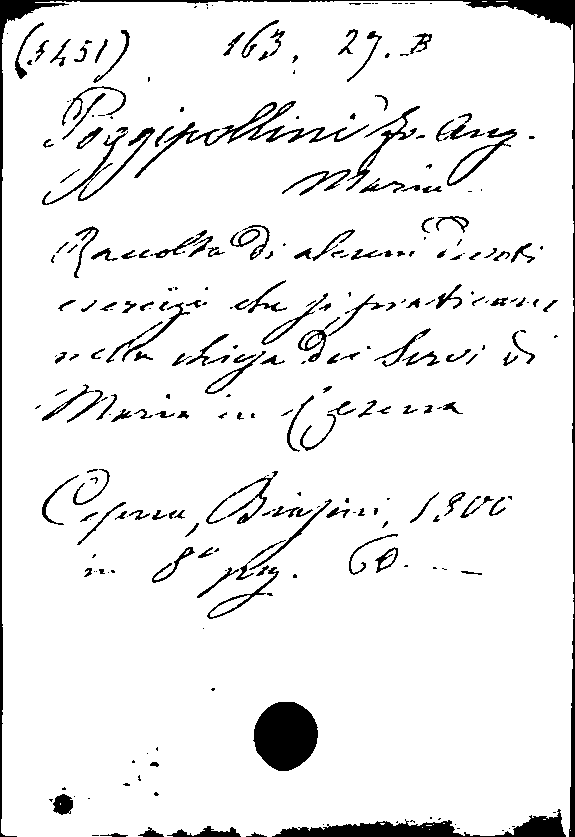 (5451) 163. 27. B
Poggipollini Fr. Ang.
Maria
Raccolta di alcuni divoti
esercizi che si praticano
nella chiesa dei Servi di
Maria in Cesena
Cesena, Biasini, 1800
in 8° pag. 60.